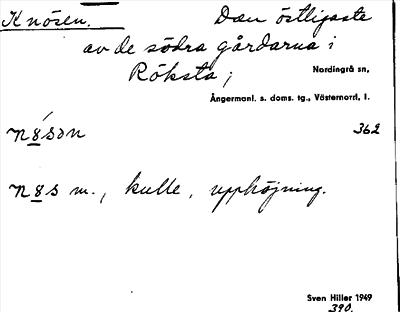 Knösen. Den östligaste
av de södra gårdarna i
Röksta;
Nordingrå sn,
Ångermanl. s. doms. tg., Västernorrl. l.
n8́sən 362
n8s m., kulle, upphöjning.
Sven Hiller 1949
390.